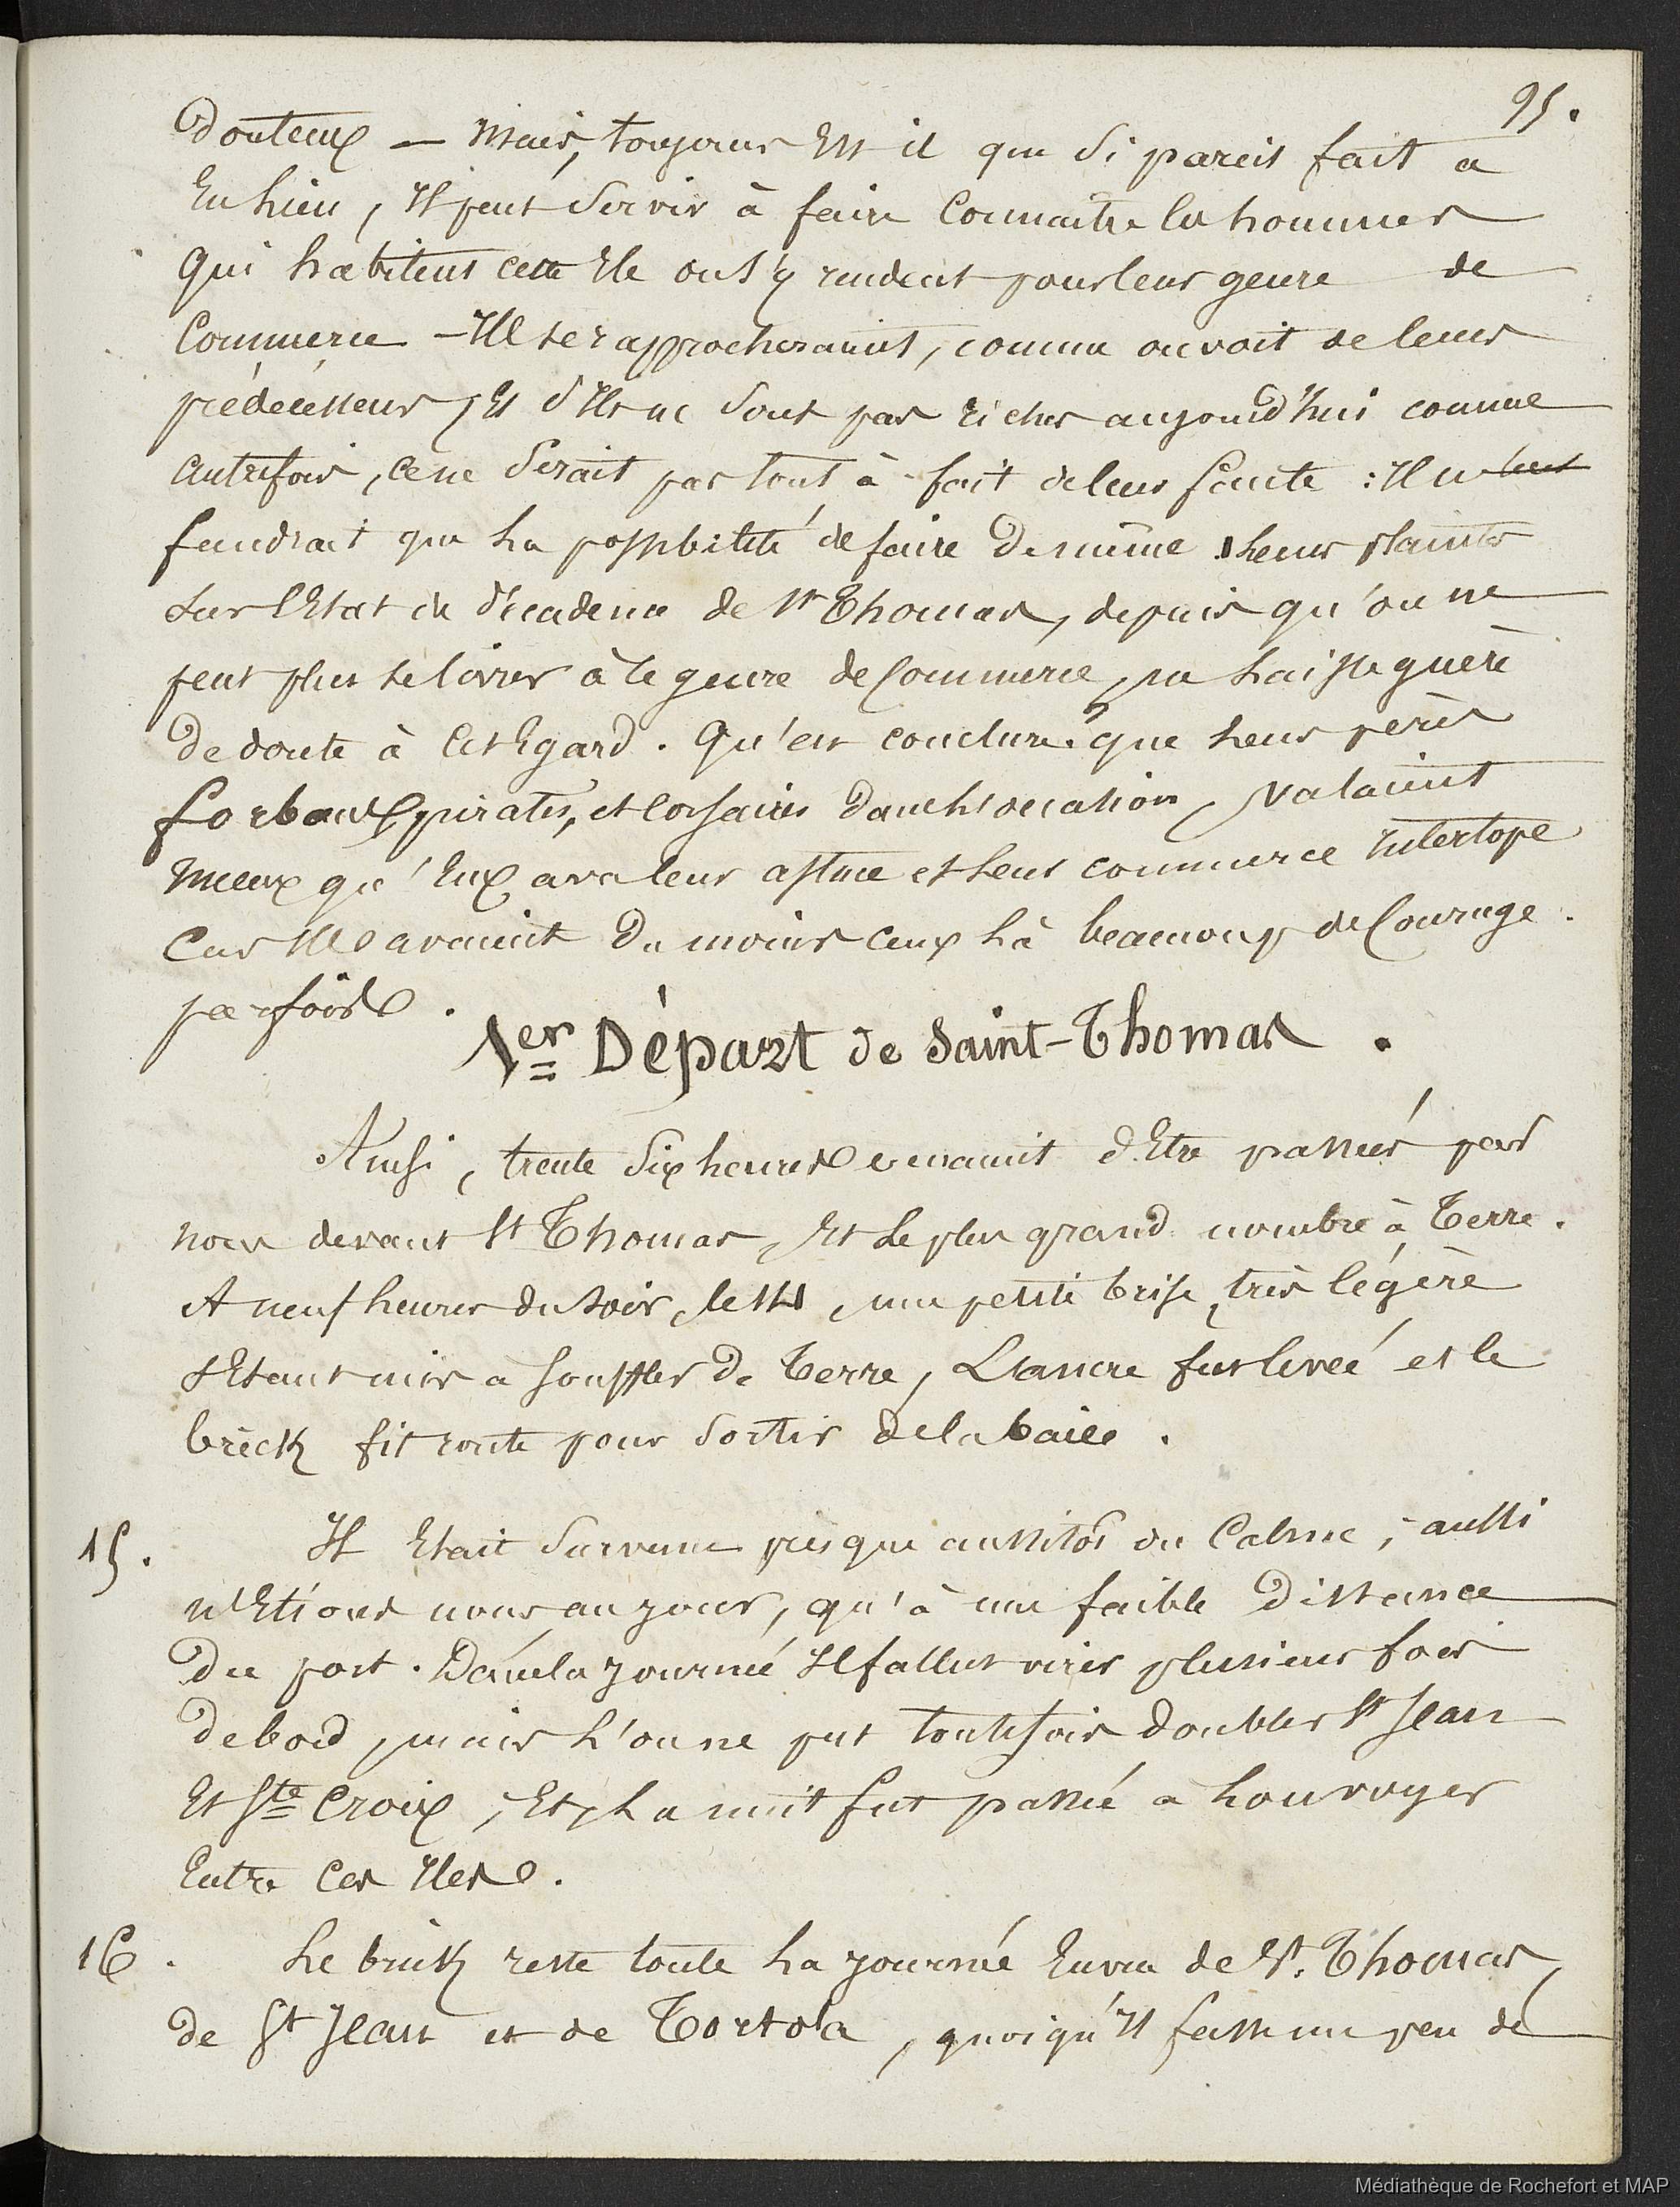 95.
Douteux — Mais, toujours Est il que si pareil fait a
Eu Lieu, Il peut Servir à faire Connaitre les hommes
Qui habitent cette Ile ou s'y rendent pour leur genre de
Commerce — Ils se rapprocheraient, comme on voit de leurs
prédécesseurs, Et s'Ils ne sont pas riches aujourd'hui comme
autrefois, ce ne serait pas tout à fait de leur faute : Il ne leur
faudrait que La possibilité de faire De même. Leurs plaintes
sur l'Etat de décadence de St Thomas, depuis qu'on ne
peut plus se livrer à ce genre de Commerce, ne Laisse guère
De doute à Cet Egard. Qu'en conclure? que Leurs pères
forbans, pirates, et Corsaires dans l'occasion, valaient
Mieux qu'Eux avec leur astuce et Leur commerce Interlope
Car Ils avaient Du moins ceux Là beaucoup de Courage
parfois.
1er Départ de Saint-Thomas.
Ainsi, trente Six heures venaient d'Etre passées par
nous devant St Thomas, Et Le plus grand nombre à Terre.
A neuf heures du soir, le 14, une petite brise, très légère
s'Etant mise a souffler De Terre, L'ancre fut levée et le
brick fit route pour Sortir de la baie.
15. Il Etait Survenu presque aussitôt du Calme, aussi
n'Etions nous au jour, qu'à une faible Distance
Du port. Dans la journée Il fallut virer plusieurs fois
De bord, mais L'on ne put toutefois doubler St Jean
Et Ste Croix, Et, La nuit fut passée a Louvoyer
Entre Ces Iles.
16. Le brick reste toute La journée En vue de St. Thomas,
de St Jean et de Tortola, quoiqu'Il fasse un peu de
Médiathèque de Rochefort et MAP